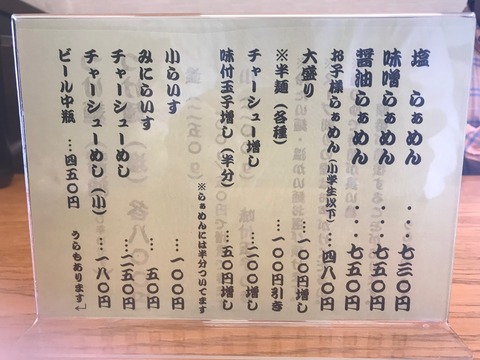 塩　らぁめん　・・・七三〇円
味噌らぁめん　・・・七五〇円
醤油らぁめん　・・・七五〇円
お子様らぁめん（小学生以下）…四八〇円
大盛り　…一〇〇円増し
※半麺（各種）　…一〇〇円引き
チャーシュー増し　…二〇〇円増し
味付玉子増し（半分）　…五〇円増し
※らぁめんには半分ついてます
小らいす　…一〇〇円
みにらいす　…五〇円
チャーシューめし　…二五〇円
チャーシューめし（小）　…一八〇円
ビール中瓶　…四五〇円
うらもあります↓